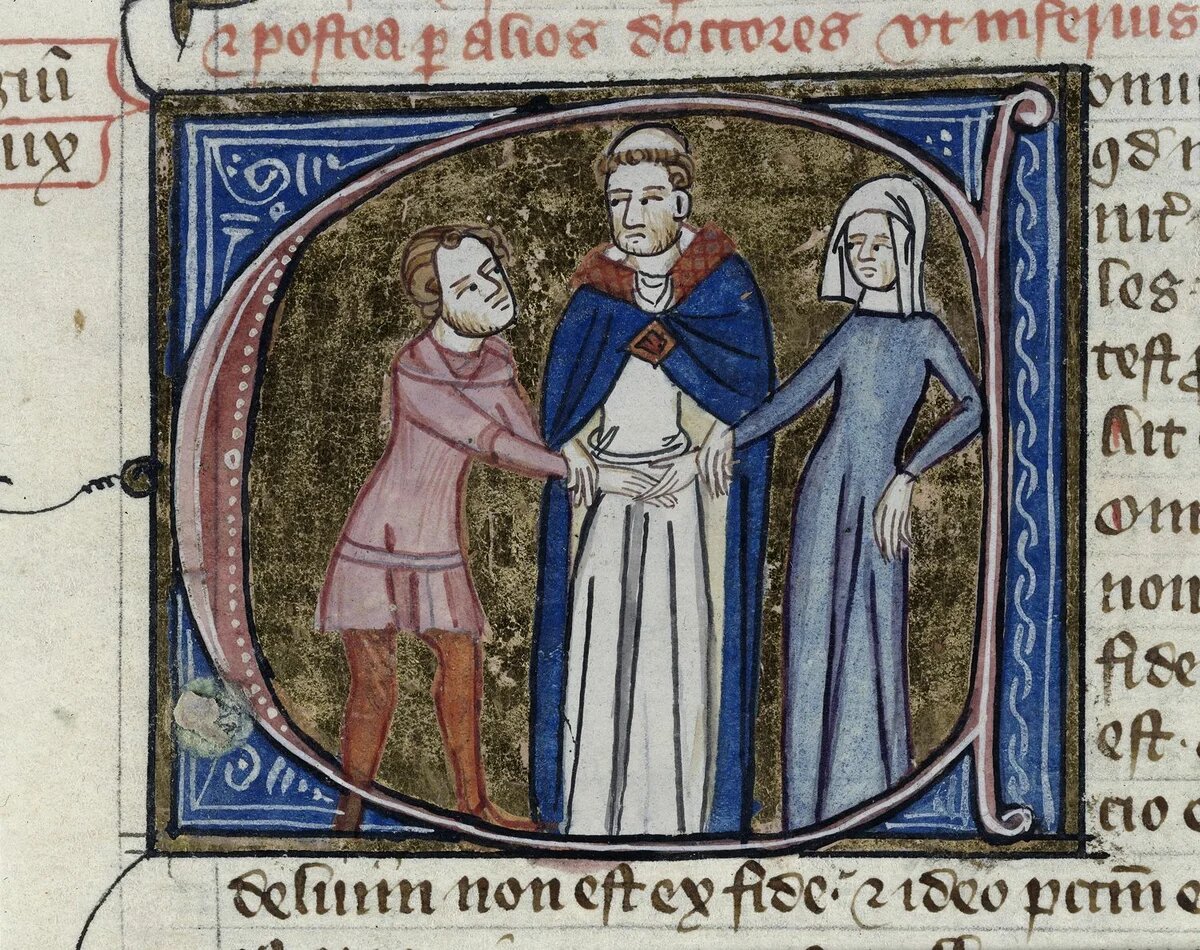 ⁊ postea ꝑ alios doctores vt inferius
giū
iux
oniu
ꝙd n
nit᾽
les
test
Ait
Om
non
fide
est.
cio
delium non est ex fide. ⁊ ideo pctm̄ e